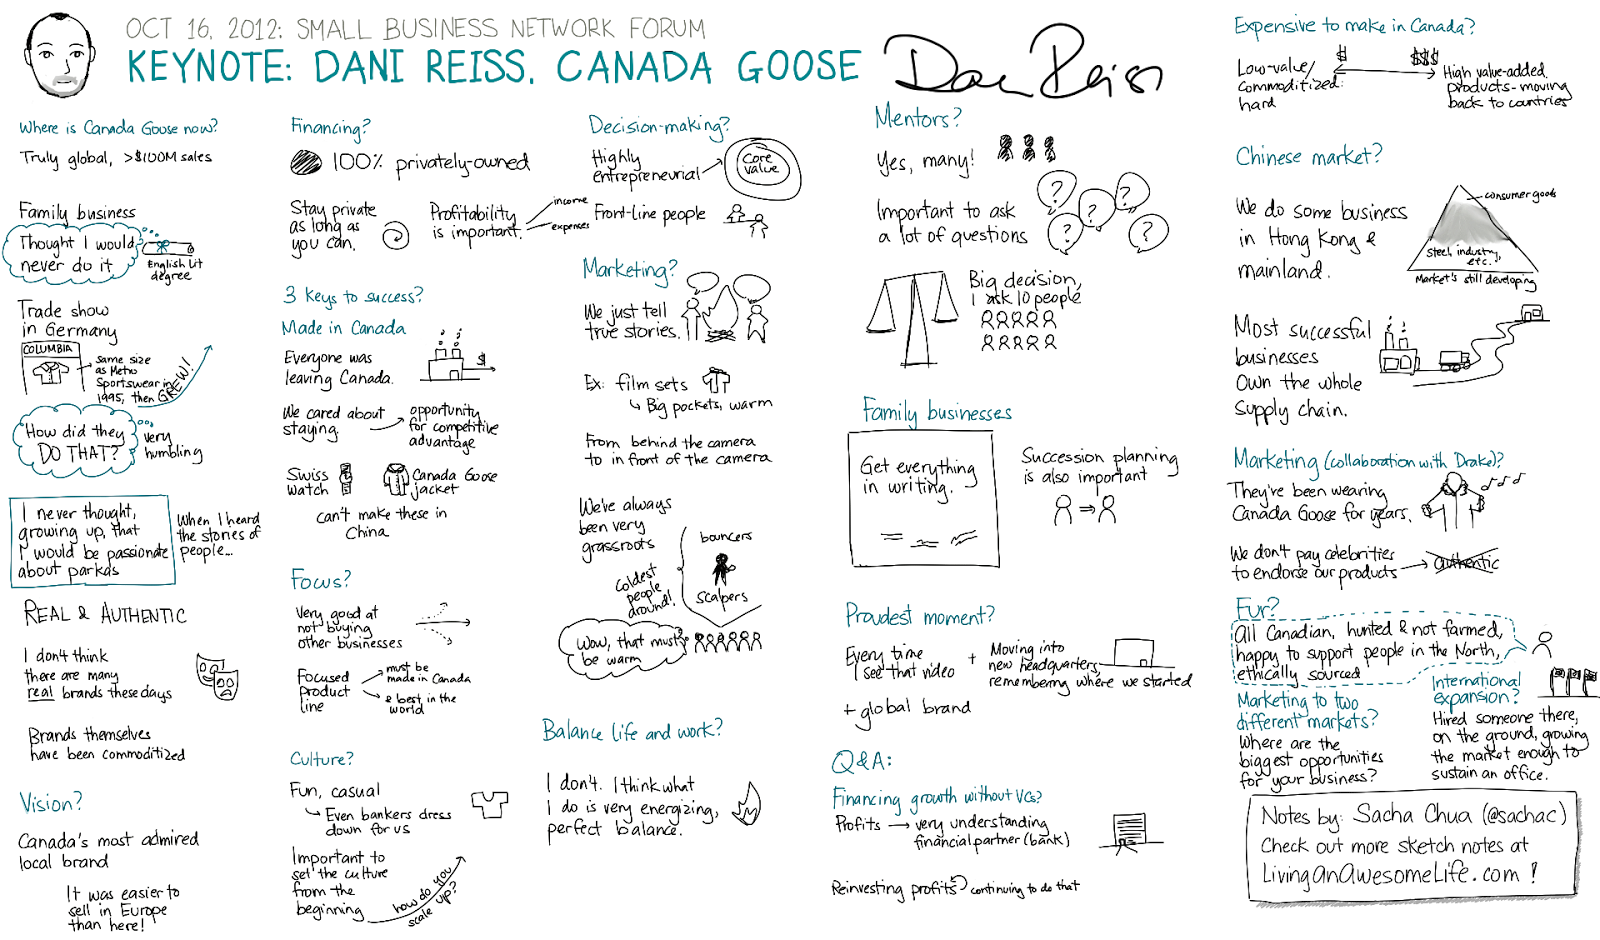 OCT 16, 2012: SMALL BUSINESS NETWORK FORUM
KEYNOTE: DANI REISS, CANADA GOOSE
Dan Reiss
Where is Canada Goose now?
Truly global, >$100M sales
Family business
Thought I would
never do it
English Lit
degree
Trade show
in Germany
COLUMBIA
same size
as Metro
Sportswear in
1995, then GREW!
How did they
DO THAT?
very
humbling
I never thought,
growing up, that
I would be passionate
about parkas
When I heard
the stories of
people...
REAL & AUTHENTIC
I don't think
there are many
real brands these days
Brands themselves
have been commoditized
Vision?
Canada's most admired
local brand
It was easier to
sell in Europe
than here!
Financing?
100% privately-owned
Stay private
as long as
you can.
Profitability
is important.
income
expenses
3 keys to success?
Made in Canada
Everyone was
leaving Canada.
$
We cared about
staying.
opportunity
for competitive
advantage
Swiss
watch
Canada Goose
jacket
can't make these in
China
Focus?
Very good at
not buying
other businesses
Focused
product
line
must be
made in Canada
& best in the
world
Culture?
Fun, casual
Even bankers dress
down for us
Important to
set the culture
from the
beginning
how do you
scale up?
Decision-making?
Highly
entrepreneurial
Core
value
Front-line people
Marketing?
We just tell
true stories.
Ex: film sets
Big pockets, warm
From behind the camera
to in front of the camera
We've always
been very
grassroots
bouncers
scalpers
coldest
people
around!
Wow, that must
be warm
Balance life and work?
I don't. I think what
I do is very energizing,
perfect balance.
Mentors?
Yes, many!
Important to ask
a lot of questions
? ? ? ? ?
Big decision,
I ask 10 people
Family businesses
Get everything
in writing.
Succession planning
is also important
Proudest moment?
Every time
I see that video
+ Moving into
new headquarters,
remembering where we started
+ global brand
Q&A:
Financing growth without VCs?
Profits → very understanding
financial partner (bank)
Reinvesting profits continuing to do that
Expensive to make in Canada?
$ $$$
Low-value/
commoditized:
hard
High value-added
products - moving
back to countries
Chinese market?
We do some business
in Hong Kong &
mainland.
consumer goods
Steel, industry,
etc.
Market's still developing
Most successful
businesses
own the whole
supply chain.
Marketing (collaboration with Drake)?
They've been wearing
Canada Goose for years.
We don't pay celebrities
to endorse our products
authentic
Fur?
All Canadian, hunted & not farmed,
happy to support people in the North,
ethically sourced
Marketing to two
different markets?
Where are the
biggest opportunities
for your business?
International
expansion?
Hired someone there,
on the ground, growing
the market enough to
sustain an office.
Notes by: Sacha Chua (@sachac)
Check out more sketch notes at
LivingAnAwesomeLife.com!